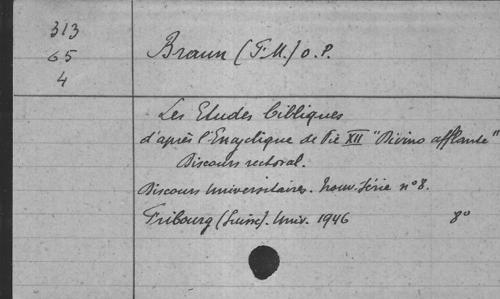 313
65
4
Braun (F.M.) O.P.
Les Etudes bibliques
d'après l'Encyclique de Pie XII "Divino afflante"
Discours rectoral.
Discours Universitaires. Nouv. Série n° 8.
Fribourg (Suisse). Univ. 1946 8°